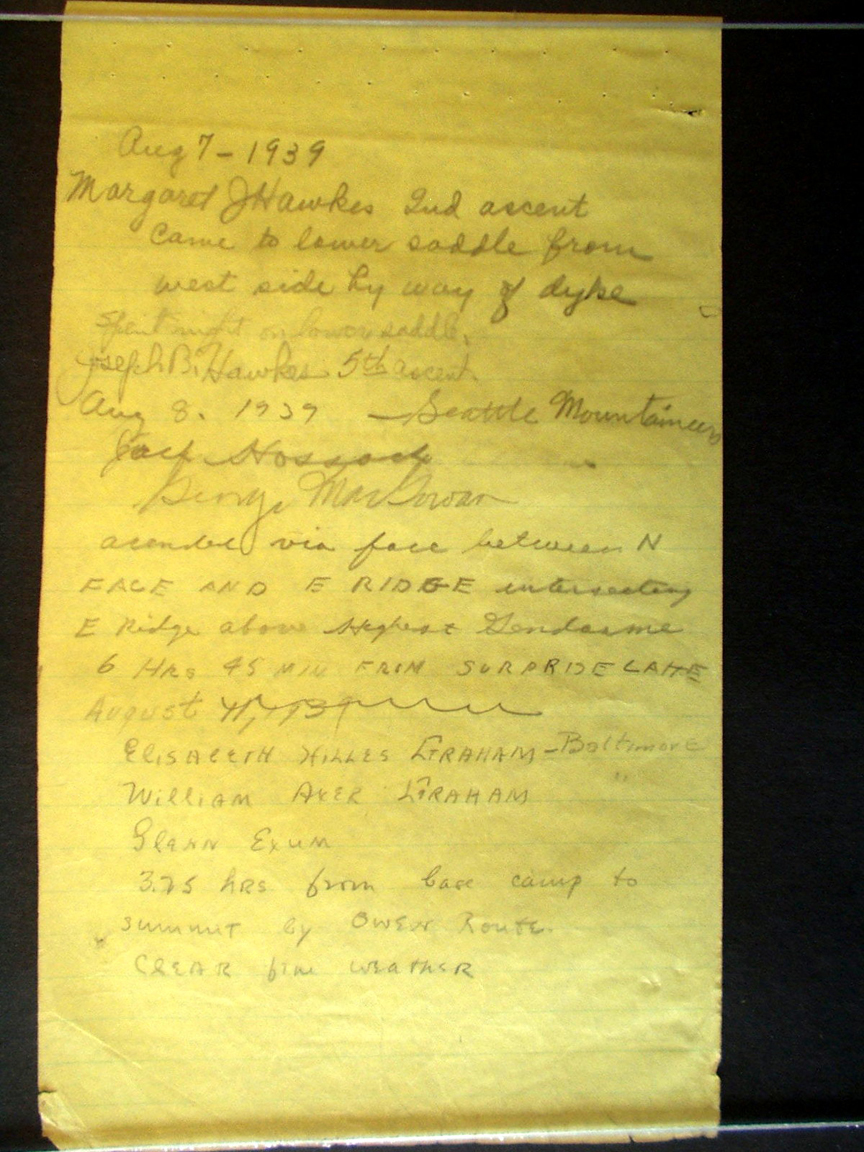 Aug 7 - 1939
Margaret J Hawkes 2nd ascent
Came to lower saddle from
west side by way of dyke
Spent night on lower saddle.
Joseph B. Hawkes 5th ascent.
Aug 8. 1939 - Seattle Mountaineers
Jack Hossack
George MacGowan
acended via face between N
FACE AND E RIDGE intersecting
E Ridge above Highest Gendarme
6 HRS 45 MIN FROM SURPRISE LAKE
August 11, 1939
ELISABETH HILLES GRAHAM - Baltimore
WILLIAM AKER GRAHAM "
Glenn Exum
3.75 hRS from base camp to
summit by OWEN Route.
CLEAR fine weather